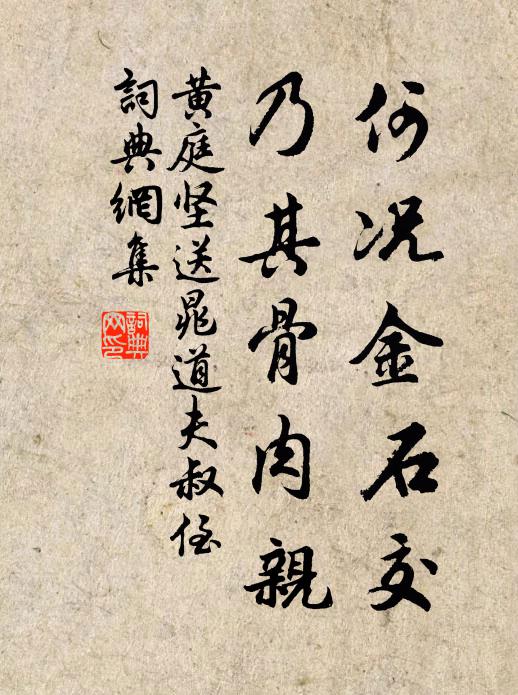 何况金石交
乃其骨肉親
黄庭坚送晁道夫叔侄
詞典網集
詞典网印